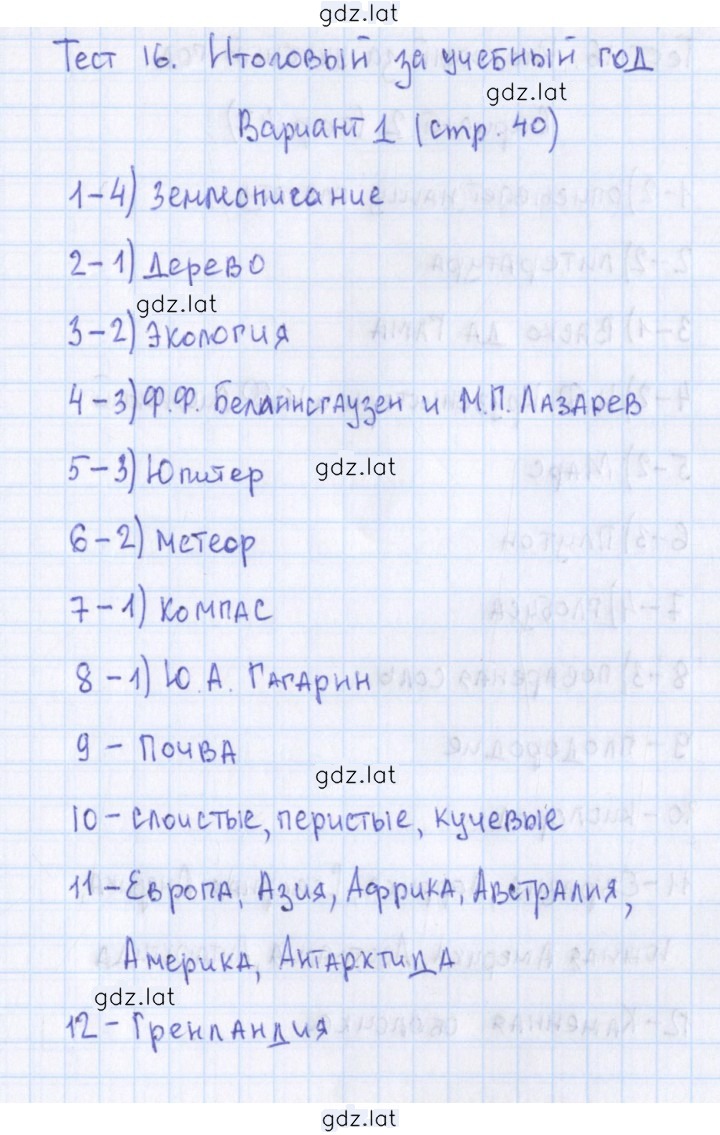 gdz.lat
Тест 16. Итоговый за учебный год
gdz.lat
Вариант 1 (стр. 40)
1-4) Землеописание
2-1) Дерево
gdz.lat
3-2) Экология
4-3) Ф.Ф. Беллинсгаузен и М.П. Лазарев
5-3) Юпитер gdz.lat
6-2) Метеор
7-1) Компас
8-1) Ю.А. Гагарин
9 - Почва
gdz.lat
10 - слоистые, перистые, кучевые
11 - Европа, Азия, Африка, Австралия,
Америка, Антарктида
gdz.lat
12 - Гренландия
gdz.lat